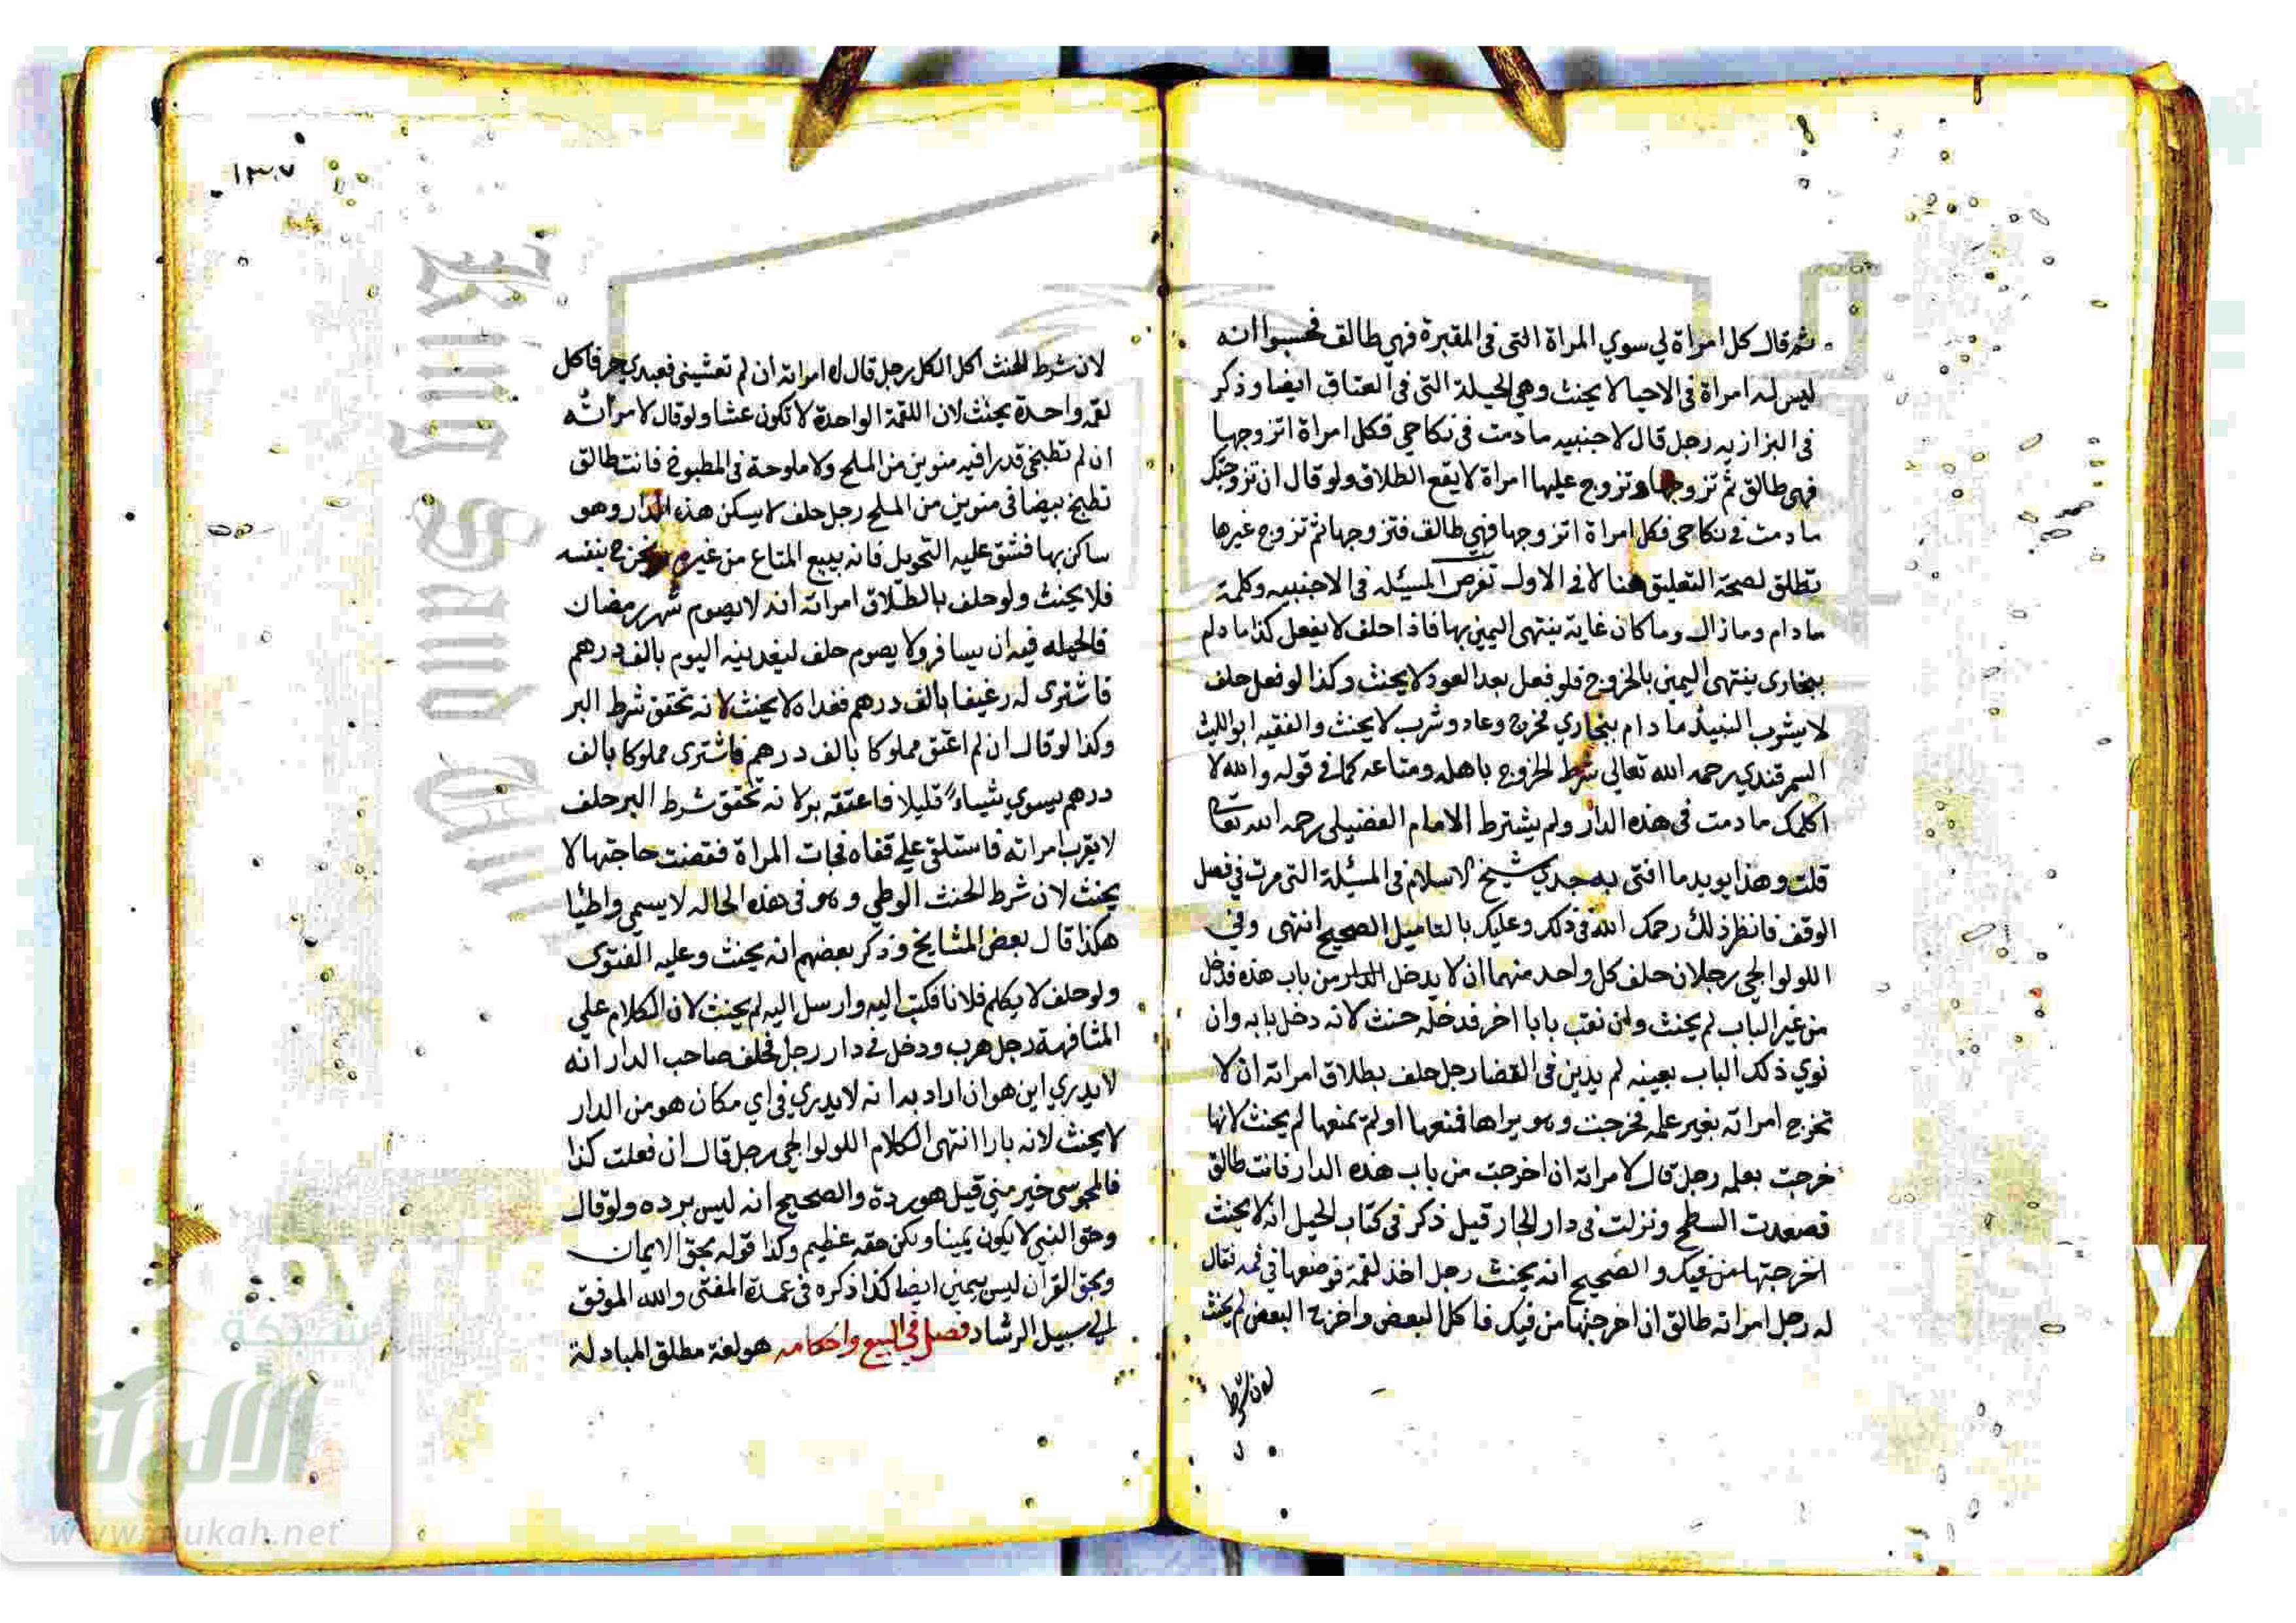 ثم قال كل امراة لي سوي المراة التى فى المقبرة فهي طالق فحسبوا انه
ليس له امراة فى الاحيا لا يحنث وهي الحيلة التى فى العتاق ايضا وذكر
فى البزازيه رجل قال لاجنبيه ما دمت فى نكاحي فكل امراة اتزوجها
فهى طالق ثم تزوجها وتزوج عليها امراة لا يقع الطلاق ولو قال ان تزوجتك
ما دمت في نكاحى فكل امراة اتزوجها فهي طالق فتزوجها ثم تزوج غيرها
تطلق لصحة التعليق هنا لا في الاول تفرض المسئله فى الاجنبيه وكلمة
ما دام وما زال وما كان غاية ينتهى اليمين بها فاذا حلف لا يفعل كذا ما دام
ببخارى ينتهى اليمين بالخروج فلو فعل بعد العود لا يحنث وكذا لو فعل حلف
لا يشرب النبيذ ما دام ببخاري فخرج وعاد وشرب لا يحنث والفقيه ابو الليث
السمرقندي رحمه الله تعالي شرط الخروج باهله ومتاعه كما في قوله والله لا
اكلمك ما دمت فى هذه الدار ولم يشترط الامام الفضيلى رحمه الله تعالى
قلت وهذا يويد ما افتى به جدي شيخ الاسلام فى المسئلة التى مرت في فصل
الوقف فانظر ذلك رحمك الله فى ذلك وعليك بالتاميل الصحيح انتهى وفي
اللولوالجى رجلان حلف كل واحد منهما ان لا يدخل الدار من باب هذه فدخل
من غير الباب لم يحنث وان نقب بابا اخر فدخله حنث لانه دخل بابه وان
نوي ذلك الباب بعينه لم يدين فى القضا رجل حلف بطلاق امراته ان لا
تخرج امراته بغير علمه فخرجت وهو يراها فمنعها او لم يمنعها لم يحنث لانها
خرجت بعلمه رجل قال لامراته ان اخرجت من باب هذه الدار فانت طالق
فصعدت السطح ونزلت فى دار الجار قيل ذكر فى كتاب الحيل انه لا يحنث
اخرجتها من فيك والصحيح انه يحنث رجل اخذ لقمة فوضعها في فمه فقال
له رجل امراته طالق ان اخرجتها من فيك فاكل البعض واخرج البعض لم يحنث
لان شرط
١٣٧
لان شرط الحنث اكل الكل رجل قال له امراته ان لم تعشينى فعبدي حر فاكل
لقمه واحدة يحنث لان اللقمة الواحدة لا تكون عشا ولو قال لامراته
ان لم تطبخى قدرا فيه منوين من الملح ولا ملوحة فى المطبوخ فانت طالق
تطبخ بيضا فى منوين من الملح رجل حلف لا يسكن هذه الدار وهو
ساكن بها فشق عليه التحويل فانه يبيع المتاع من غيره ويخرج بنفسه
فلا يحنث ولو حلف بالطلاق امراته انه لا يصوم شهر رمضان
فالحيله فيه ان يسافر ولا يصوم حلف ليغدينه اليوم بالف درهم
فاشترى له رغيفا بالف درهم فغداه لا يحنث لانه تحقق شرط البر
وكذا لو قال ان لم اعتق مملوكا بالف درهم فاشترى مملوكا بالف
درهم يسوي شياء قليلا فاعتقه بر لانه تحقق شرط البر حلف
لا يقرب امراته فاستلقى على قفاه فجات المراة فقضت حاجتها لا
يحنث لان شرط الحنث الوطي وهو فى هذه الحاله لا يسمي واطئا
هكذا قال بعض المشايخ وذكر بعضهم انه يحنث وعليه الفتوى
ولو حلف لا يكلم فلانا فكتب اليه وارسل اليه لم يحنث لان الكلام علي
المشافهة رجل هرب ودخل في دار رجل فحلف صاحب الدار انه
لا يدري اين هو ان اراد به انه لا يدري في اي مكان هو من الدار
لا يحنث لانه بارا انتهى الكلام اللولوالجى رجل قال ان فعلت كذا
فالمجوسى خير مني قيل هو ردة والصحيح انه ليس برده ولو قال
وحق النبى لا يكون يمينا ولكن حقه عظيم وكذا قوله بحق الايمان
وبحق القرآن ليس بيمين ايضا كذا ذكره فى عمدة المفتى والله الموفق
الى سبيل الرشاد فصل في البيع واحكامه هو لغة مطلق المبادلة
شبكة
الألوكة
www.alukah.net